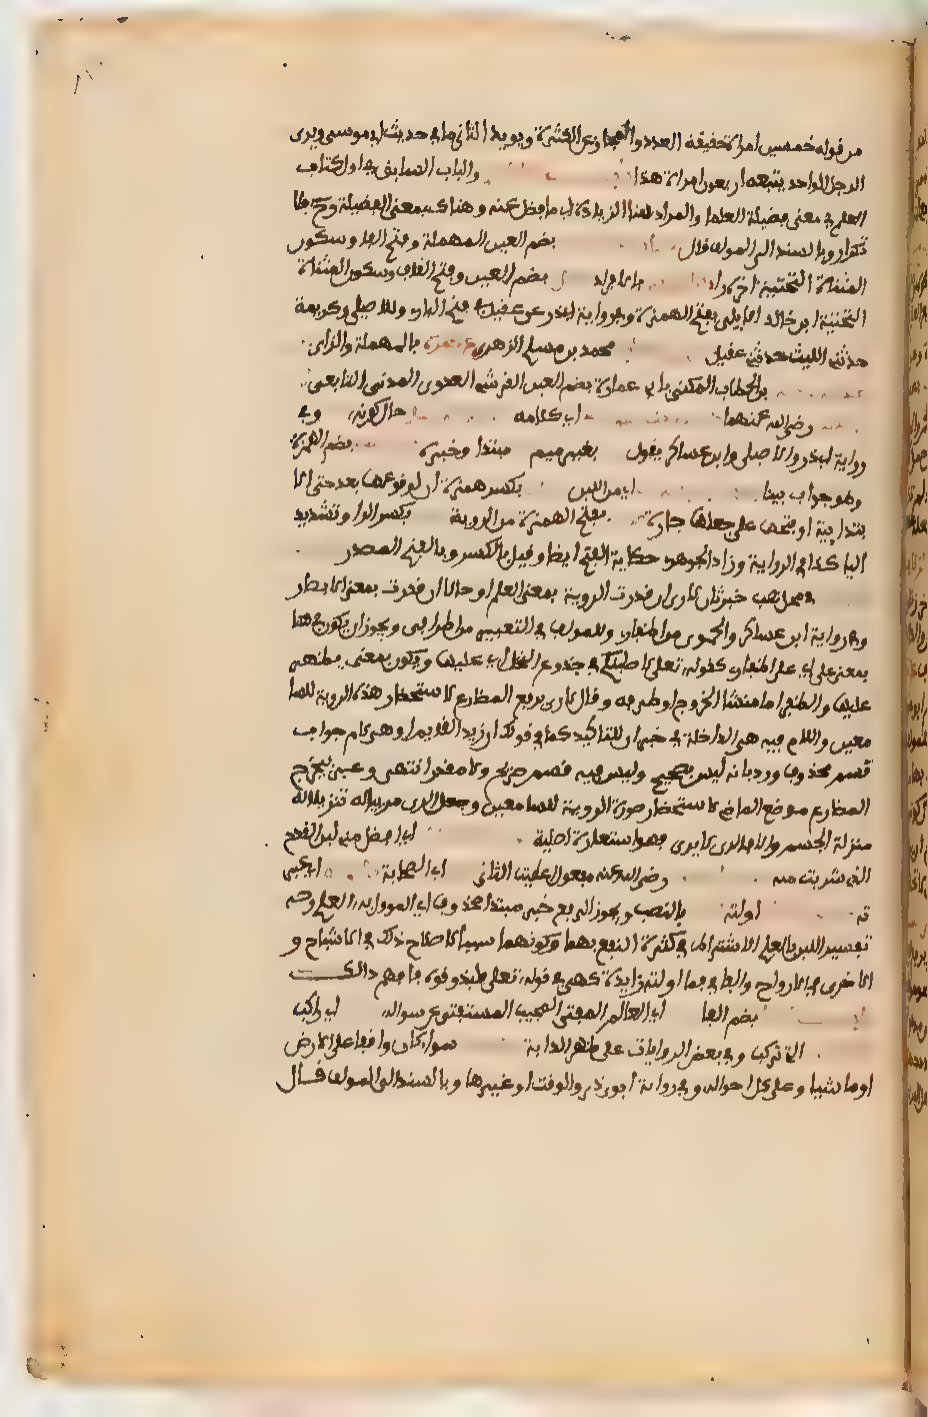 من قوله خمسين امراة حقيقة العدد والمجاز عن الكثرة ويويد الثاني ما في حديث ابي موسى ويرى
الرجل الواحد يتبعه اربعون امراة هذا والباب السابق في اول كتاب
العلم في معنى فضيلة العلما والمراد هنا الزيادة اي ما فضل عنه وهناك بمعنى الفضيلة وح فلا
تكرار وبالسند الى المولف قال بضم العين المهملة وفتح الفا وسكون
المثناة التحتية اخره را بالافراد بضم العين وفتح القاف وسكون المثناة
التحتية ابن خالد الايلي بفتح الهمزة وفي رواية ابي ذر عن عقيل فتح اللام وللاصيلي وكريمة
حدثني الليث حدثني عقيل محمد بن مسلم الزهري حمزة بالمهملة والزاي
بن الخطاب المكنى بابي عمارة بضم العين القرشي العدوي المدني التابعي
رضي الله عنهما اي كلامه حال كونه وفي
رواية ابي ذر والاصيلي وابن عساكر يقول بغير ميم مبتدا وخبره بضم الهمزة
وهو جواب بينا اي من اللبن بكسر همزة ان لوقوعها بعد حتى الا
بتدايية او فتحها على جعلها جارة بفتح الهمزة من الروية بكسر الرا وتشديد
اليا كذا في الرواية وزاد الجوهري حكاية الفتح ايضا وقيل بالكسر وبالفتح المصدر
في محل نصب خبر ثان لاري ان قدرت الروية بمعنى العلم او حالا ان قدرت بمعنى الابصار
وفي رواية ابن عساكر والحموي من اظفاري وللمولف في التعبير من اطرافي ويجوز ان يكون في هنا
بمعنى على اي على اظفاري كقوله تعلى لاصلبنكم في جذوع النخل اي عليها ويكون بمعنى يظهر
عليها والظفر اما منشا الخروج او ظرفه وقال لاري برفع المضارع لاستحضار هذه الروية للسا
معين واللام فيه هي الداخلة في خبر ان للتاكيد كما في قولك ان زيدا لقايم او هي لام جواب
قسم محذوف ورد بانه ليس بصحيح وليس فيه قسم صريح ولا مقدر انتهى وعبر بيخرج
المضارع موضع الماضي لاستحضار صورة الروية للسامعين وجعل الري مرييا له تنزيلا له
منزلة الجسم والا فالري لا يرى فهو استعارة اصلية اي ما فضل من لبن القدح
الذي شربت منه رضي الله عنه مفعول اعطيت الثاني اي الصحابة اي عبر
ته اولته بالنصب ويجوز الرفع خبر مبتدا محذوف اي المووول به العلم ووجه
تفسير اللبن بالعلم الاشتراك في كثرة النفع بهما وكونهما سببا للاصلاح ذلك في الاشباح و
الاخرى في الارواح والفا في فما اولته زايدة كهي في قوله تعلى فليذوقوه فافهم ذالك
بضم الفا اي العالم المفتي المجيب المستفتي عن سواله اي راكب
التي تركب وفي بعض الروايات على ظهر الدابة سوا كان واقفا على الارض
او ماشيا وعلى كل احواله وفي رواية ابوي ذر والوقت او غيرها وبالسند الى المولف قال